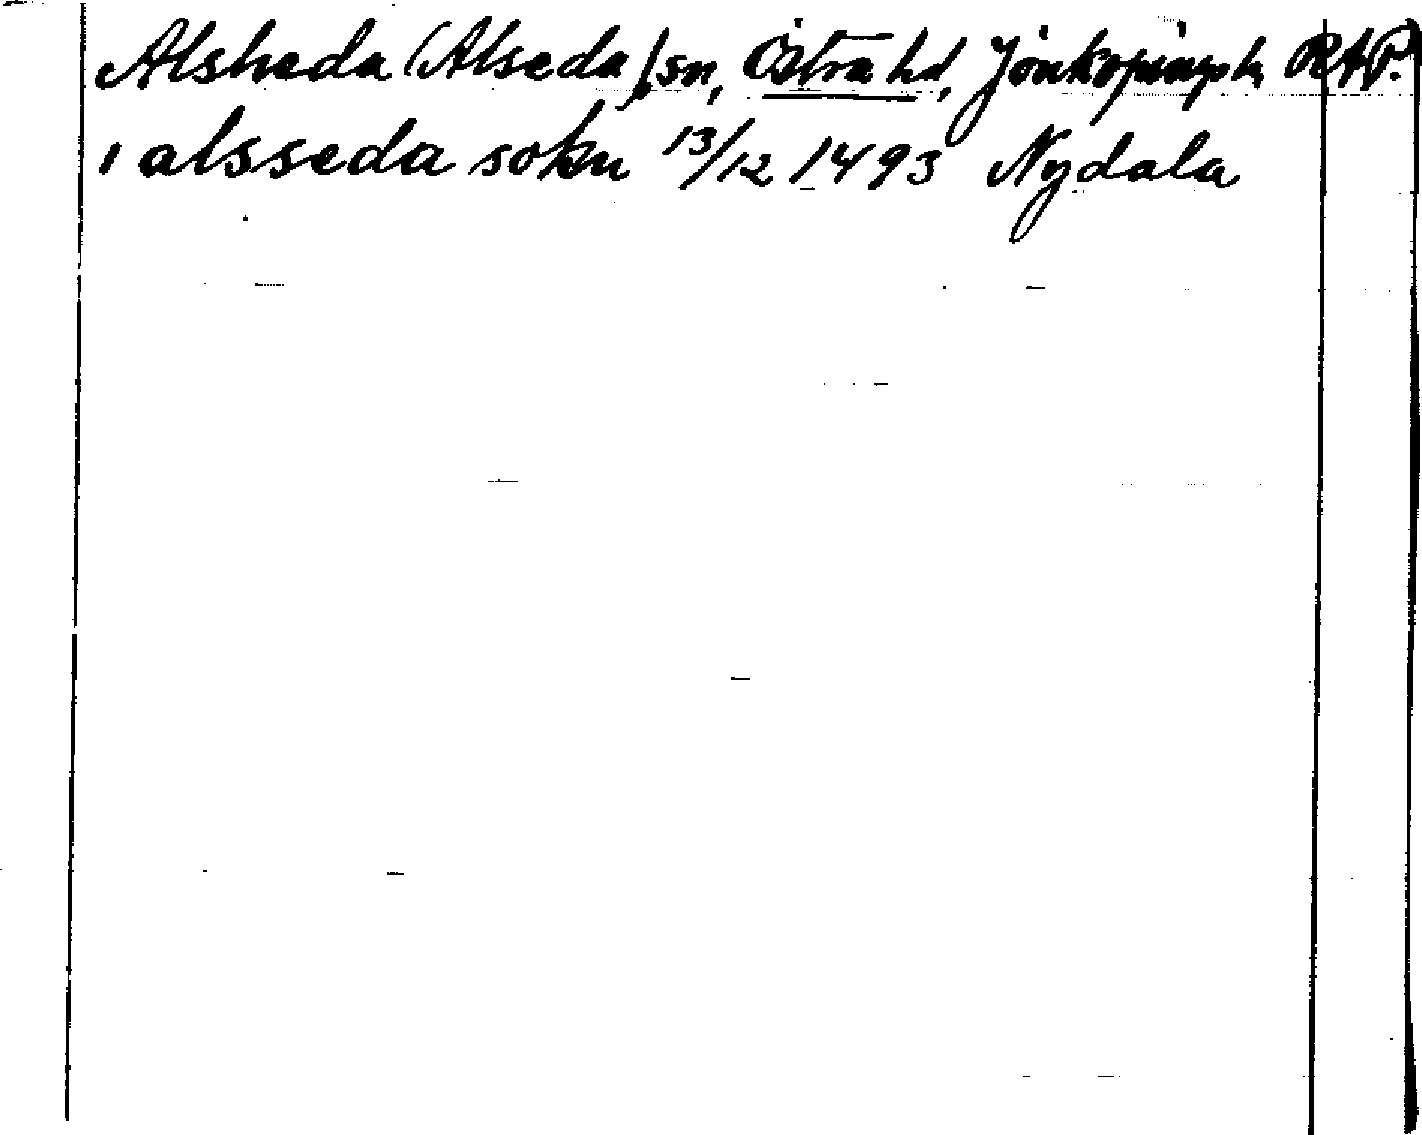 Alsheda (Alseda), sn, Östra hd, Jönköpings l. RAP.
i alsseda sokn 13/12 1493 Nydala